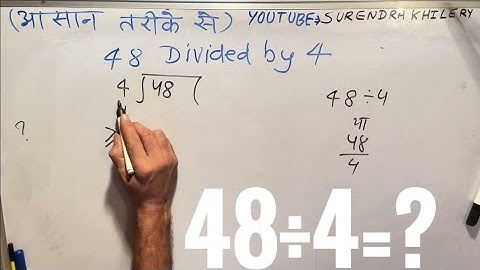 (आसान तरीके से) YOUTUBE:→SURENDRA KHILERY
48 Divided by 4
4)48(
48÷4
या
48
4
?
48÷4=?